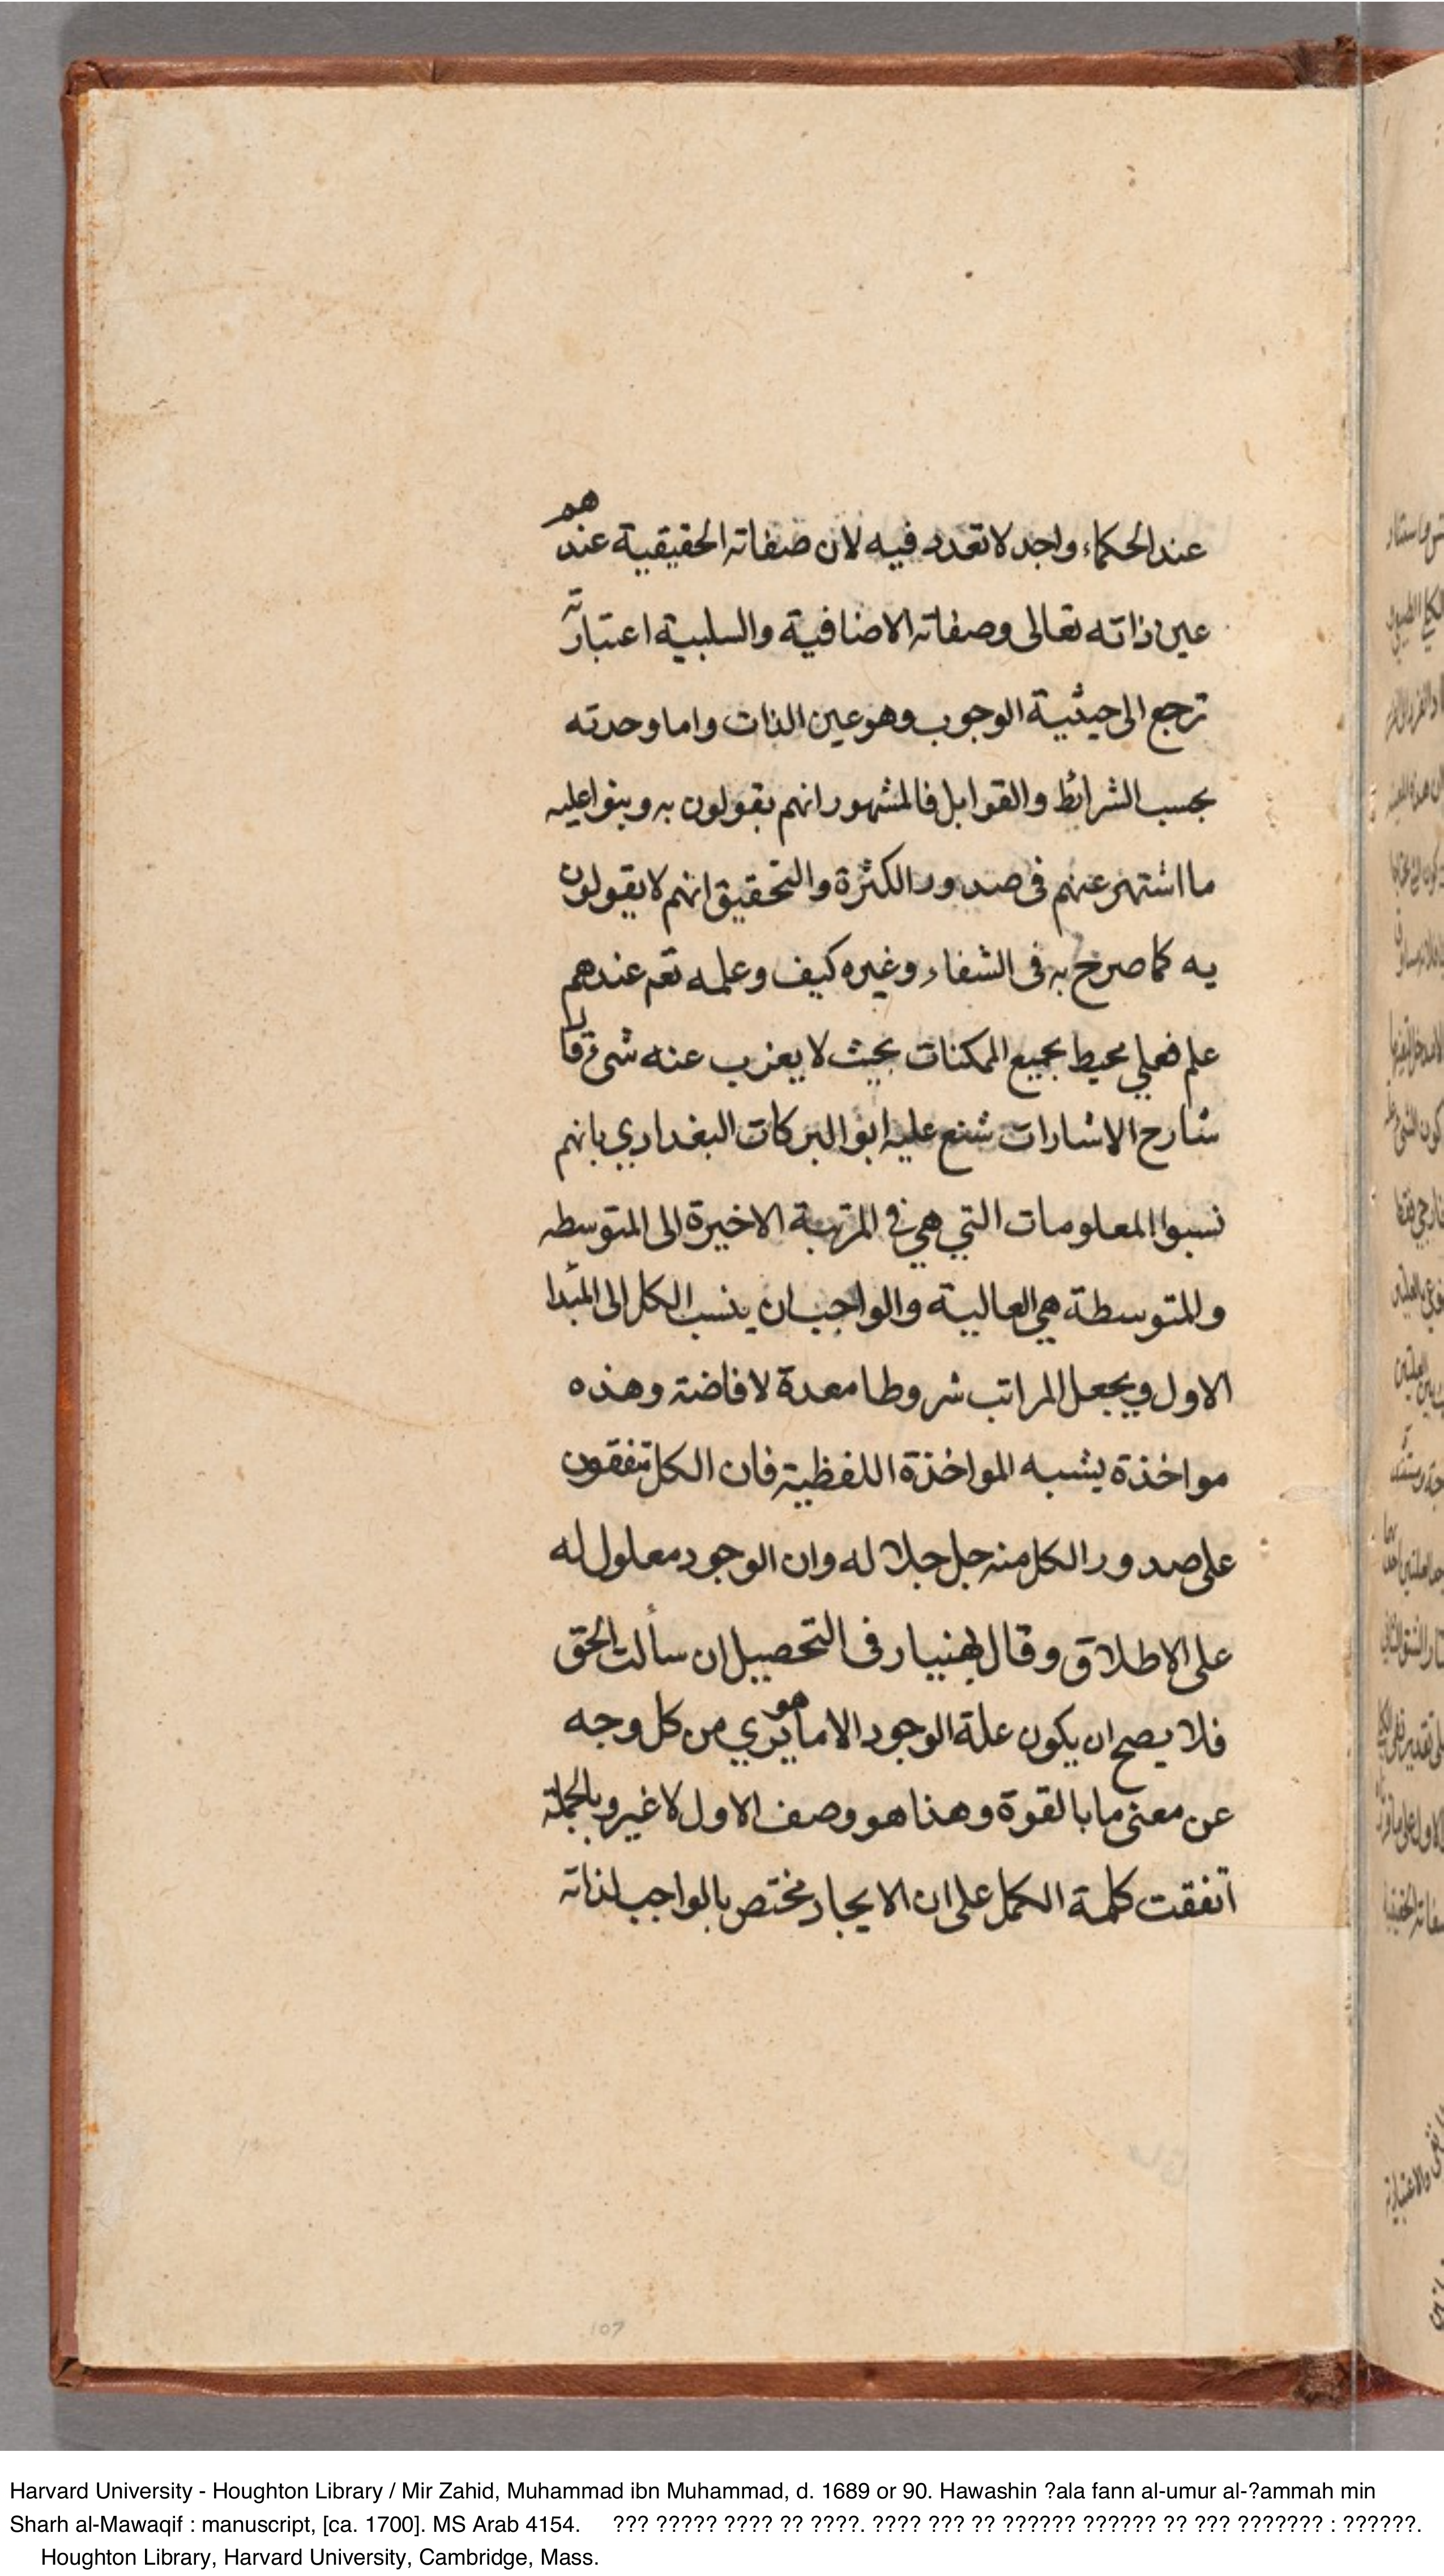 عند الحكماء واحد لا تعدد فيه لان صفاته الحقيقية عندهم
عين ذاته تعالى وصفاته الاضافية والسلبية اعتبارية
ترجع الى حيثية الوجوب وهو عين الذات واما وحدته
بحسب الشرائط والقوابل فالمشهور انهم يقولون به وبنوا عليه
ما اشتهر عنهم فى صدور الكثرة والتحقيق انهم لا يقولون
به كما صرح به فى الشفاء وغيره كيف وعلمه تعم عندهم
علم فعلي محيط بجميع الممكنات بحيث لا يعزب عنه شىء قال
شارح الاشارات شنع عليه ابو البركات البغدادي بانهم
نسبوا المعلومات التي هي في المرتبة الاخيرة الى المتوسطه
والمتوسطة هي العالية والواجب ان ينسب الكل الى المبدا
الاول ويجعل المراتب شروطا معدة لافاضته وهذه
مواخذة يشبه المواخذة اللفظية فان الكل متفقون
على صدور الكل منه جل جلاله وان الوجود معلول له
على الاطلاق وقال بهنيار فى التحصيل ان سألت الحق
فلا يصح ان يكون علة الوجود الا ما هو بري من كل وجه
عن معنى ما بالقوة وهذا هو وصف الاول لا غير وبالجملة
اتفقت كلمة الكمل على ان الايجاد مختص بالواجب لذاته
107
Harvard University - Houghton Library / Mir Zahid, Muhammad ibn Muhammad, d. 1689 or 90. Hawashin ?ala fann al-umur al-?ammah min
Sharh al-Mawaqif : manuscript, [ca. 1700]. MS Arab 4154. ??? ????? ???? ?? ????. ???? ??? ?? ?????? ?????? ?? ??? ??????? : ??????.
Houghton Library, Harvard University, Cambridge, Mass.